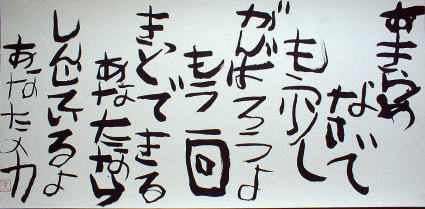 あきらめ
ないで
もう少し
がんばろうよ
もう一回
きっとできる
あなたなら
しんじているよ
あなたの力